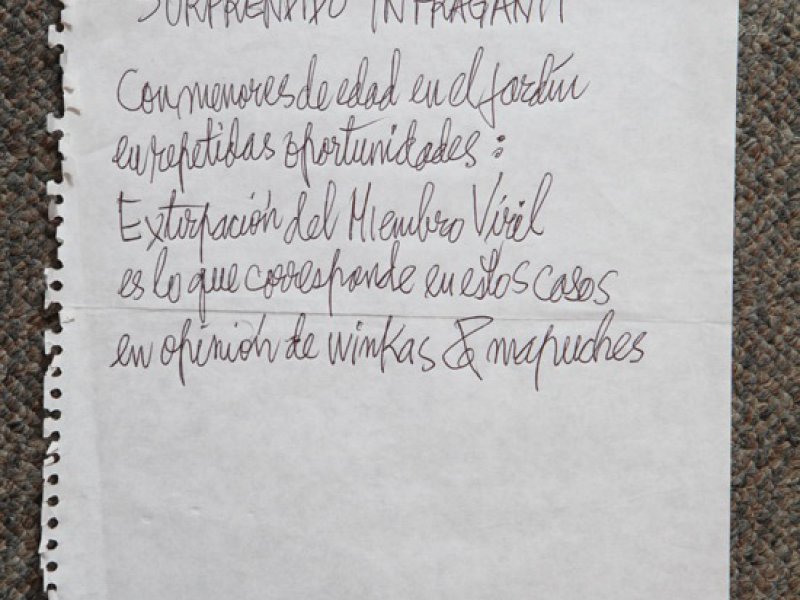 SORPRENDIDO INFRAGANTI
Con menores de edad en el jardín
en repetidas oportunidades:
Extirpación del Miembro Viril
es lo que corresponde en estos casos
en opinión de winkas & mapuches